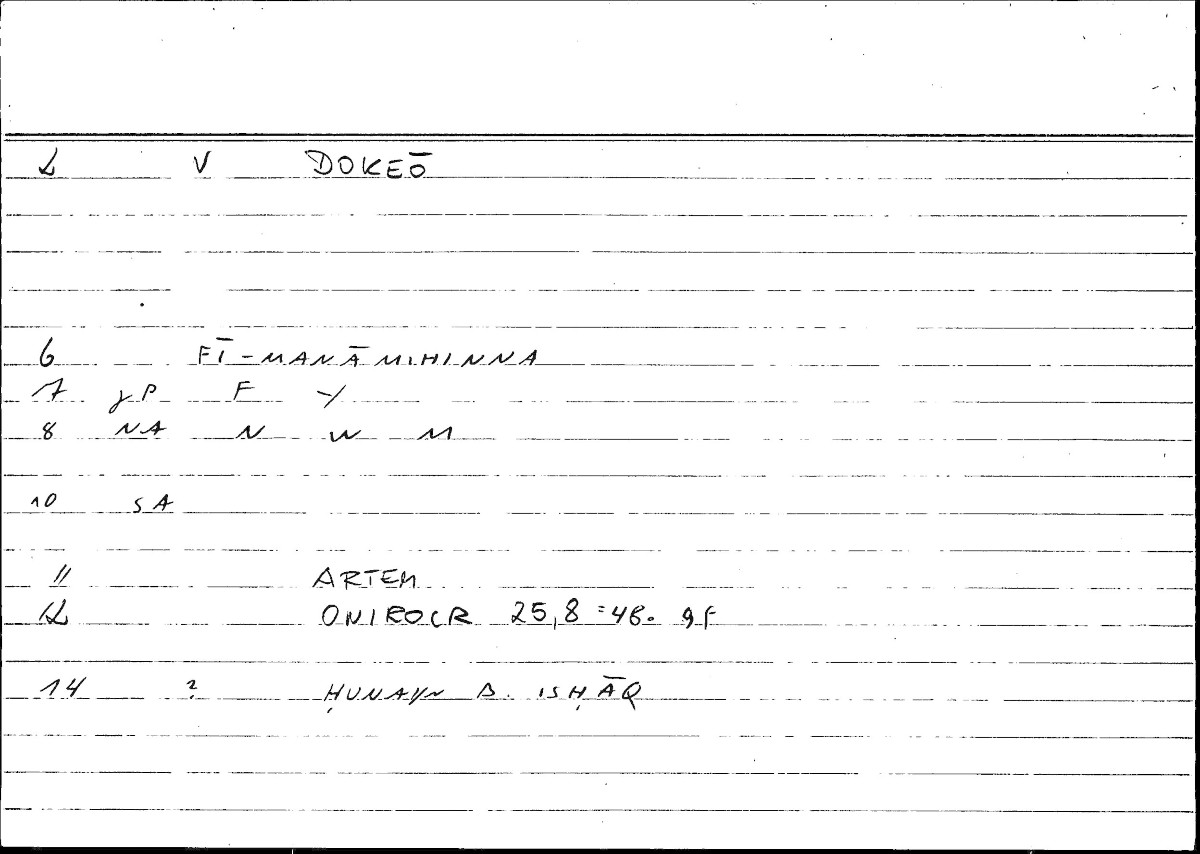 2 V DOKEŌ
6 FĪ-MANĀMIHINNA
7 γP F -/
8 NA N W M
10 SA
11 ARTEM
12 ONIROCR 25,8 = 48. 9f
14 ? ḤUNAYN B. ISḤĀQ